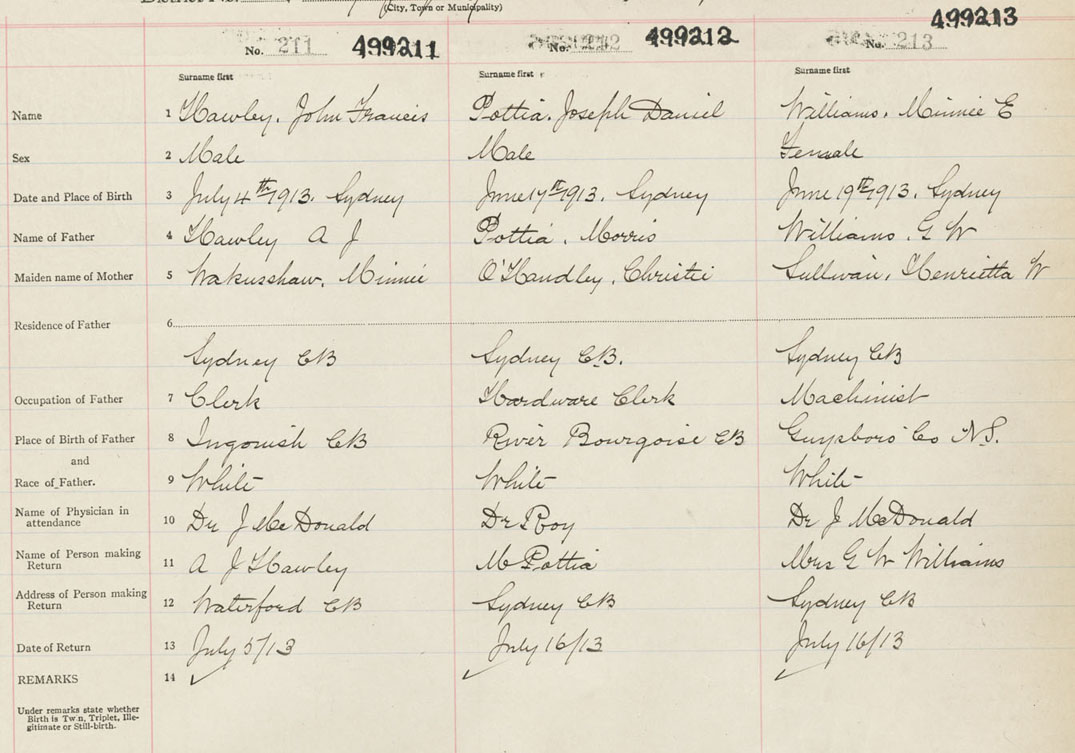 (City, Town or Municipality)
No. 211 499211 No. 212 499212 No. 213 499213
Surname first Surname first Surname first
Name 1 Hawley, John Francis Pottia, Joseph Daniel Williams, Minnie E
Sex 2 Male Male Female
Date and Place of Birth 3 July 4th 1913. Sydney June 17th 1913. Sydney June 19th 1913. Sydney
Name of Father 4 Hawley A J Pottia, Morris Williams, G W
Maiden name of Mother 5 Minnie O'Handley, Christie Sullivan, Henrietta W
Residence of Father 6
Sydney CB Sydney C.B. Sydney CB
Occupation of Father 7 Clerk Hardware Clerk Machinist
Place of Birth of Father 8 Ingonish CB River Bourgoise CB Guysboro Co N.S.
and
Race of Father. 9 White White White
Name of Physician in
attendance 10 Dr J McDonald Dr Roy Dr J McDonald
Name of Person making
Return 11 A J Hawley M Pottia Mrs G W Williams
Address of Person making
Return 12 Waterford CB Sydney CB Sydney CB
Date of Return 13 July 5/13 July 16/13 July 16/13
REMARKS 14
Under remarks state whether
Birth is Twin, Triplet, Ille-
gitimate or Still-birth.